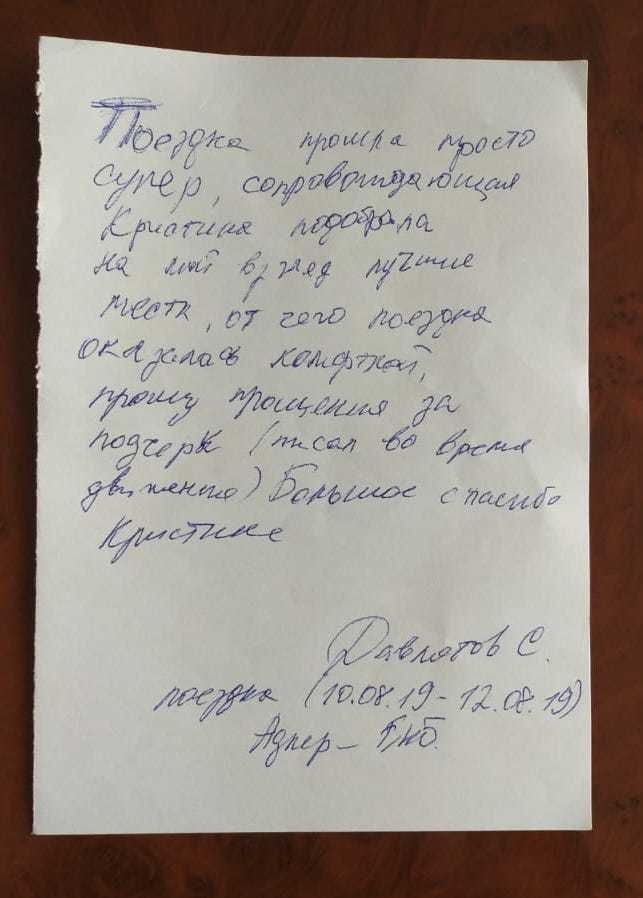 Поездка прошла просто
супер, сопровождающая
Кристина подобрала
на мой взгляд лучшие
места, от чего поездка
оказалась комфткой,
прошу прощения за
подчерк (писал во время
движения) Большое спасибо
Кристине
Давлятов С.
поездка (10.08.19 - 12.08.19)
Адлер -